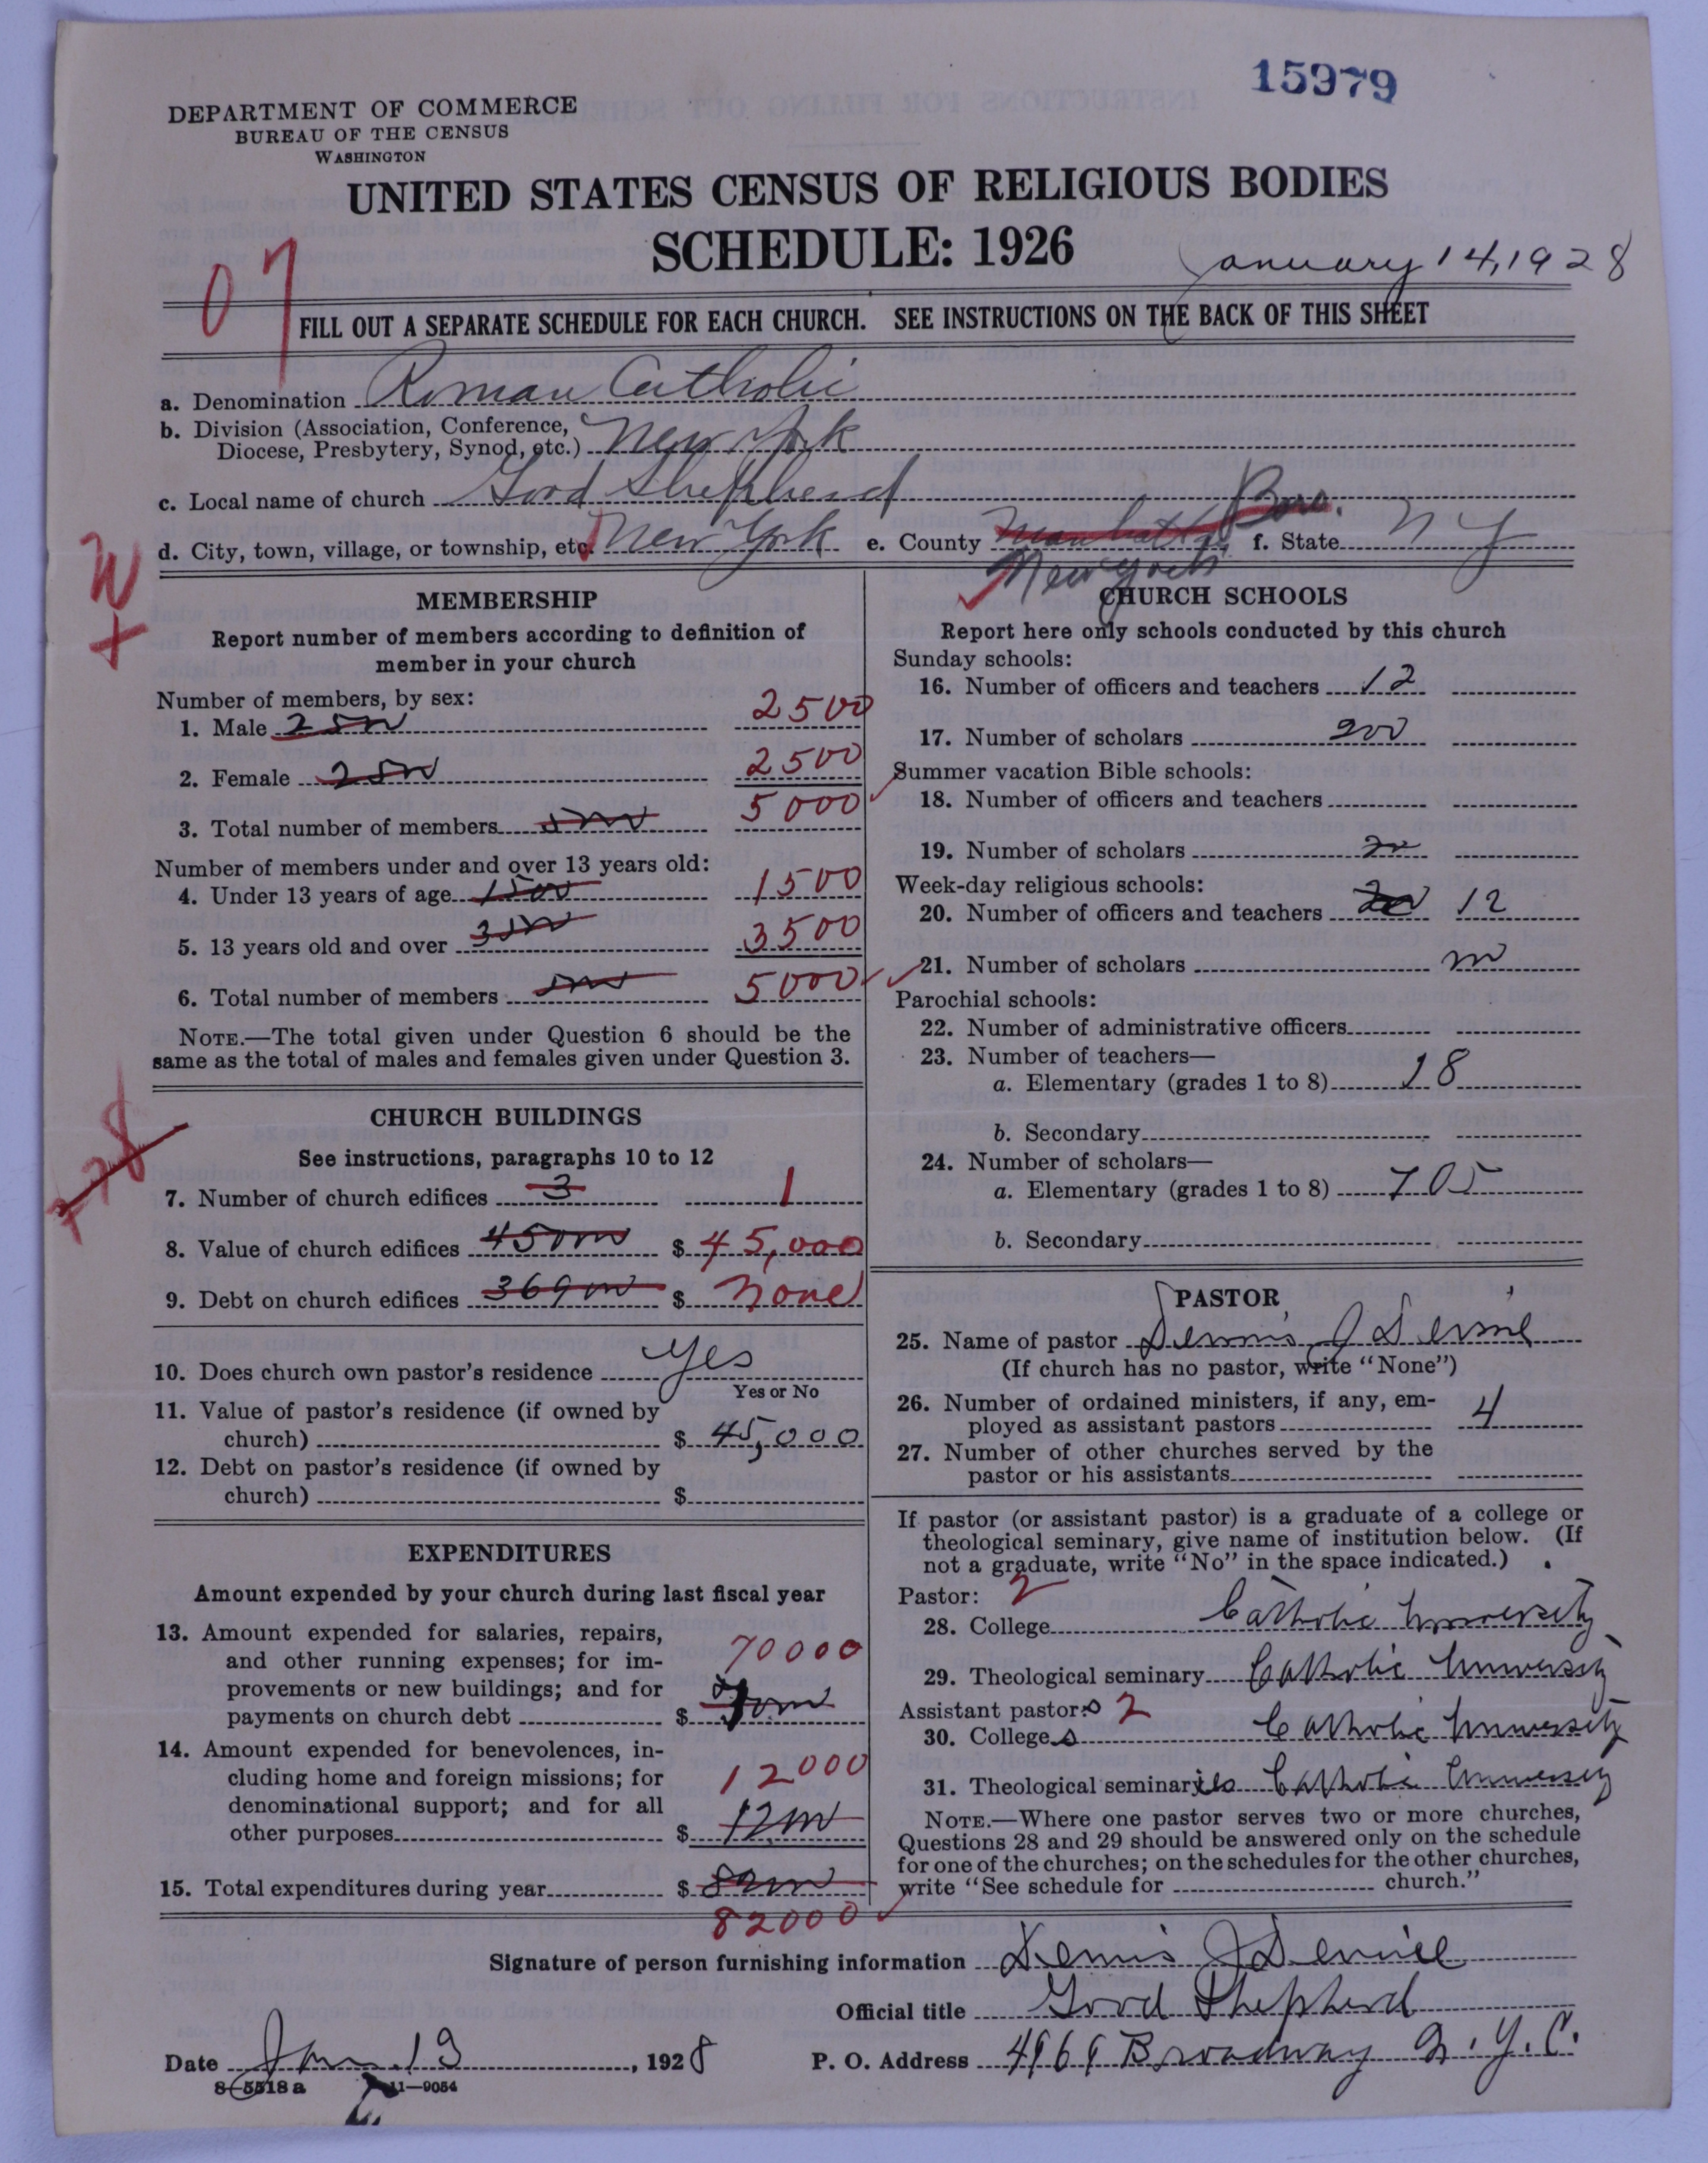 15979
DEPARTMENT OF COMMERCE
BUREAU OF THE CENSUS
WASHINGTON
UNITED STATES CENSUS OF RELIGIOUS BODIES
SCHEDULE: 1926
January 14, 1928
07
FILL OUT A SEPARATE SCHEDULE FOR EACH CHURCH. SEE INSTRUCTIONS ON THE BACK OF THIS SHEET
a. Denomination Roman Catholic
b. Division (Association, Conference,
Diocese, Presbytery, Synod, etc.) New York
c. Local name of church Good Shepherd
d. City, town, village, or township, etc. New York e. County Manhattan Boro. f. State N Y
New York
MEMBERSHIP
Report number of members according to definition of
member in your church
Number of members, by sex:
1. Male 2500 2500
2. Female 2500 2500
3. Total number of members 5000
Number of members under and over 13 years old:
4. Under 13 years of age 1500 1500
5. 13 years old and over 3500
6. Total number of members 5000
NOTE.—The total given under Question 6 should be the
same as the total of males and females given under Question 3.
CHURCH BUILDINGS
See instructions, paragraphs 10 to 12
7. Number of church edifices 3 1
8. Value of church edifices $ 45,000
9. Debt on church edifices $ none
10. Does church own pastor's residence yes
Yes or No
11. Value of pastor's residence (if owned by
church) $ 45,000
12. Debt on pastor's residence (if owned by
church) $
EXPENDITURES
Amount expended by your church during last fiscal year
13. Amount expended for salaries, repairs,
and other running expenses; for im-
provements or new buildings; and for
payments on church debt $
70000
14. Amount expended for benevolences, in-
cluding home and foreign missions; for
denominational support; and for all
other purposes $
12000
15. Total expenditures during year $
82000
CHURCH SCHOOLS
Report here only schools conducted by this church
Sunday schools:
16. Number of officers and teachers 12
17. Number of scholars 200
Summer vacation Bible schools:
18. Number of officers and teachers
19. Number of scholars
Week-day religious schools:
20. Number of officers and teachers 12
21. Number of scholars
Parochial schools:
22. Number of administrative officers
23. Number of teachers—
a. Elementary (grades 1 to 8) 18
b. Secondary
24. Number of scholars—
a. Elementary (grades 1 to 8) 705
b. Secondary
PASTOR
25. Name of pastor Dennis J Devine
(If church has no pastor, write "None")
26. Number of ordained ministers, if any, em-
ployed as assistant pastors 4
27. Number of other churches served by the
pastor or his assistants
If pastor (or assistant pastor) is a graduate of a college or
theological seminary, give name of institution below. (If
not a graduate, write "No" in the space indicated.)
Pastor: 2
28. College Catholic University
29. Theological seminary Catholic University
Assistant pastor:s 2
30. College s Catholic University
31. Theological seminaries Catholic University
NOTE.—Where one pastor serves two or more churches,
Questions 28 and 29 should be answered only on the schedule
for one of the churches; on the schedules for the other churches,
write "See schedule for church."
Signature of person furnishing information Dennis J Devine
Official title Good Shepherd
Date Jan. 13, 1928 P. O. Address Broadway N.Y.C.
8—5518a 11—9054